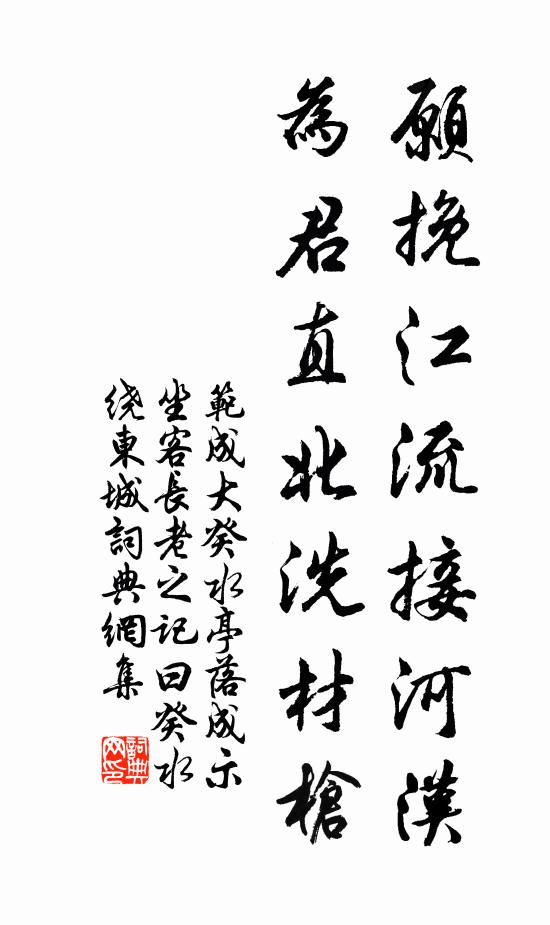 願挽江流接河漢
為君直北洗材槍
範成大癸水亭落成示
坐客長老之記曰癸水
绕東城詞典網集
詞典网印